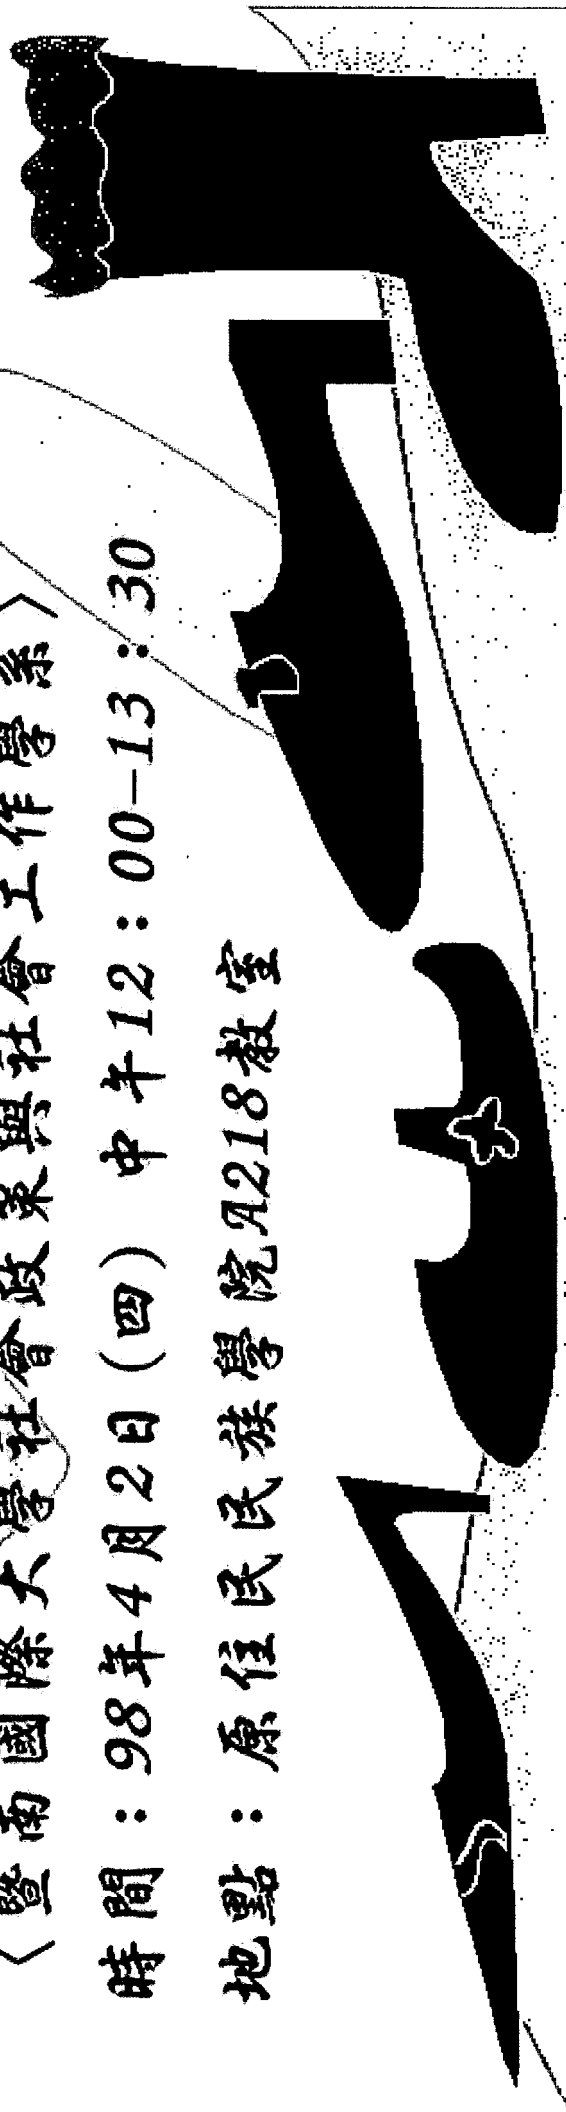 〈暨南國際大學社會政策與社會工作學系〉
時間：98年4月2日(四) 中午12：00-13：30
地點：原住民民族學院A218教室